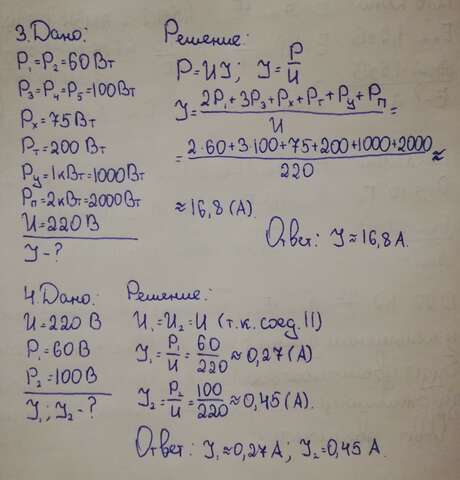 3. Дано:
P₁=P₂=60Вт
P₃=P₄=P₅=100Вт
Pₓ=75Вт
Pт=200 Вт
Pу=1кВт=1000Вт
Pп=2кВт=2000Вт
U=220 В
I-?
Решение:
P=UI; I=P/U
I=(2P₁+3P₃+Pₓ+Pт+Pу+Pп)/U=
=(2·60+3·100+75+200+1000+2000)/220≈
≈16,8 (А).
Ответ: I≈16,8 А.
4. Дано:
U=220 В
P₁=60В
P₂=100В
I₁; I₂-?
Решение:
U₁=U₂=U (т.к. соед. ||)
I₁=P₁/U=60/220≈0,27(А)
I₂=P₂/U=100/220≈0,45(А).
Ответ: I₁≈0,27А; I₂=0,45 А.